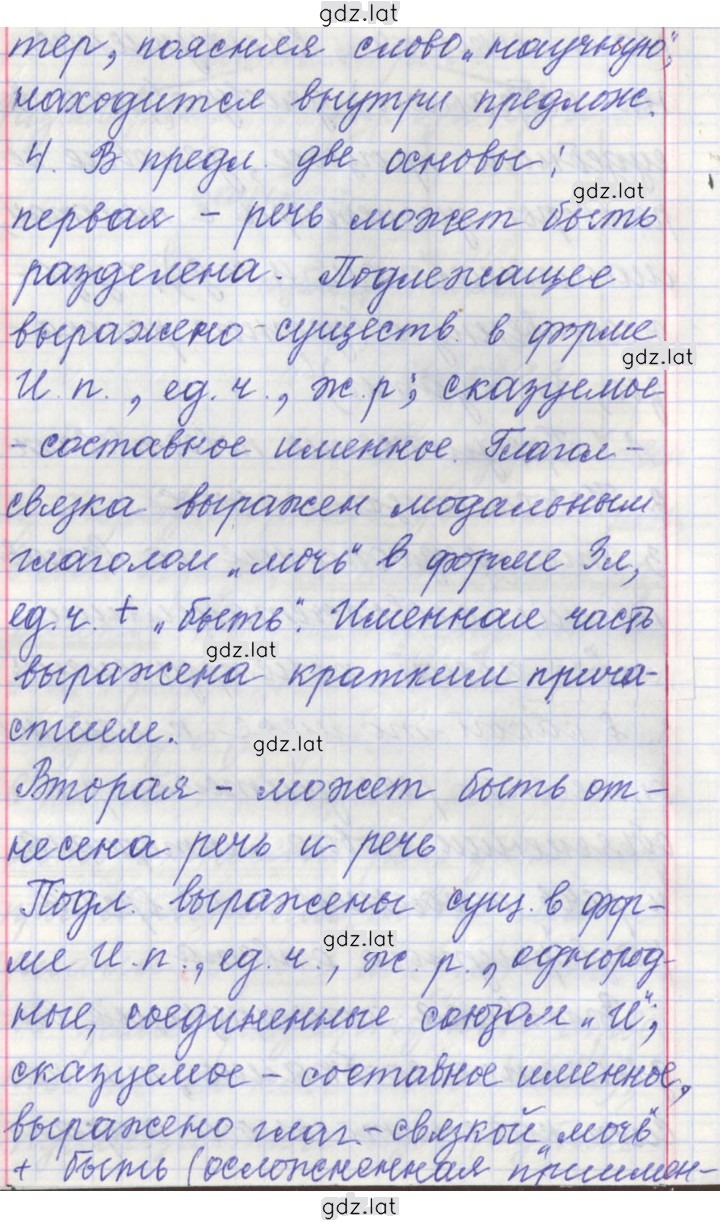 gdz.lat
тер, поясняя слово „научную“,
находится внутри предлож.
4. В предл. две основы:
gdz.lat
первая – речь может быть
разделена. Подлежащее
выражено существ. в форме
gdz.lat
И.п., ед.ч., ж.р; сказуемое
– составное именное. Глагол-
связка выражен модальным
глаголом „мочь“ в форме 3л,
ед.ч. + „быть“. Именная часть
gdz.lat
выражена кратким прича-
стием.
gdz.lat
Вторая – может быть от-
несена речь и речь
Подл. выражены сущ. в фор-
gdz.lat
ме И.п., ед.ч., ж.р., однород-
ные, соединенные союзом „И“;
сказуемое – составное именное,
выражено глаг-связкой „мочь“
+ быть (осложненная
gdz.lat